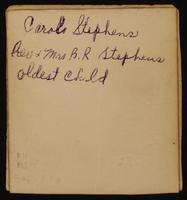 Carole Stephens
Rev & Mrs B. R Stephens
oldest child